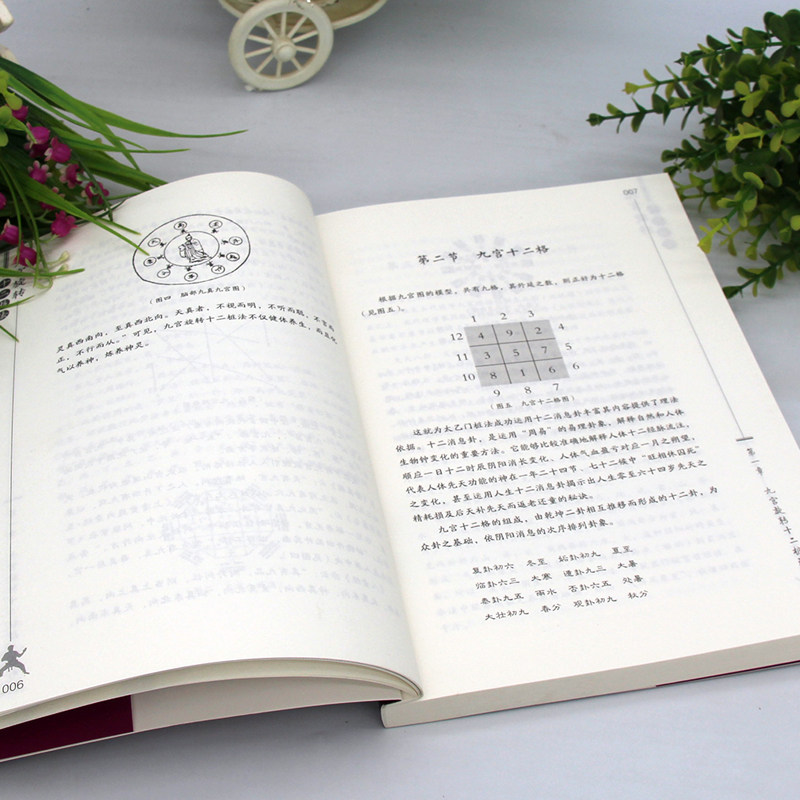 (图四 脑部九真九宫图)
灵真西南向，至真西北向。天真者，不视而明，不听而聪，不言而
正，不行而从。”可见，九宫旋转十二桩法不仅健体养生，而且化
气以养神，炼养神灵。
006
007
第二节 九宫十二格
根据九宫图的模型，共有九格，其外延之数，则正好为十二格
(见图五)。
1 2 3
12 4 9 2 4
11 3 5 7 5
10 8 1 6 6
9 8 7
(图五 九宫十二格图)
这就为太乙门桩法成功运用十二消息卦丰富其内容提供了理法
依据。十二消息卦，是运用“周易”的易理卦象，解释自然和人体
生物钟变化的重要方法。它能够比较准确地解释人体十二经脉流注，
顺应一日十二时辰阴阳消长变化、人体气血盈亏对应一月之朔望，
代表人体先天功能的神在一年二十四节、七十二候中“旺相休囚死”
之变化，甚至运用人生十二消息卦揭示出人生零至六十四岁先天之
精耗损及后天补先天而返老还童的秘诀。
九宫十二格的组成，由乾坤二卦相互推移而形成的十二卦，为
众卦之基础，依阴阳消息的次序排列卦象。
复卦初六 冬至 姤卦初九 夏至
临卦六三 大寒 遁卦九三 大暑
泰卦九五 雨水 否卦六五 处暑
大壮初九 春分 观卦初九 秋分
第一章 九宫旋转十二桩